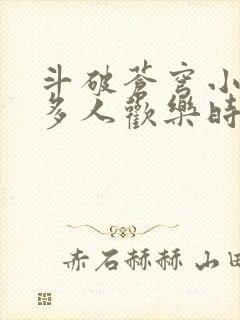 斗破苍穹小
多人歡樂時
赤石赫赫山田